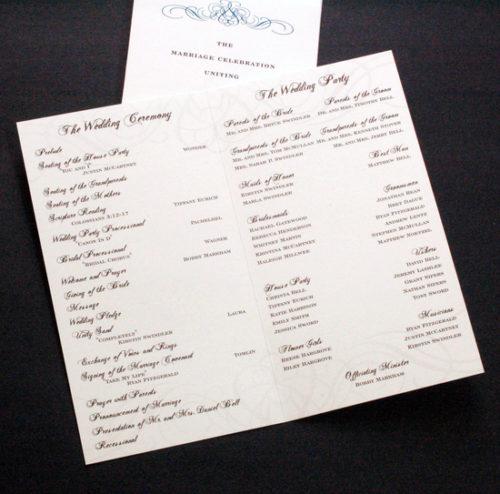 THE
MARRIAGE CELEBRATION
UNITING
The Wedding Ceremony
Prelude
Seating of the House Party WONDER
"YOU AND I" JUSTIN MCCARTNEY
Seating of the Grandparents
Seating of the Mothers
Scripture Reading TIFFANY EURICH
COLOSSIANS 3:12-17
Wedding Party Processional PACHELBEL
"CANON IN D"
Bridal Processional WAGNER
"BRIDAL CHORUS"
Welcome and Prayer BOBBY MARKHAM
Giving of the Bride
Message
Wedding Pledge
Unity Sand LAURA
"COMPLETELY" KIRSTIN SWINDLER
Exchange of Vows and Rings
Signing of the Marriage Covenant TOMLIN
"TAKE MY LIFE" RYAN FITZGERALD
Prayer with Parents
Pronouncement of Marriage
Presentation of Mr. and Mrs. Daniel Bell
Recessional
The Wedding Party
Parents of the Bride
MR. AND MRS. BRUCE SWINDLER
Parents of the Groom
DR. AND MRS. TIMOTHY BELL
Grandparents of the Bride
MR. AND MRS. TOM MCMULLAN
MRS. SARAH D. SWINDLER
Grandparents of the Groom
MR. AND MRS. KENNETH STOVER
MR. AND MRS. JERRY BELL
Maids of Honor
KIRSTIN SWINDLER
MARLA SWINDLER
Best Man
MATTHEW BELL
Bridesmaids
RACHAEL GATEWOOD
REBECCA HENDERSON
WHITNEY MARVIN
KRONTINA MCCARTNEY
HALEIGH MILLWEE
Groomsmen
JONATHAN BEAN
BRET DAGUE
RYAN FITZGERALD
ANDREW LENTZ
STEPHEN MCMULLAN
MATTHEW NORTHEL
House Party
CHRISTA BELL
TIFFANY EURICH
KATIE HARBISON
EMILY SMITH
JESSICA SWORD
Ushers
DAVID BELL
JEREMY LASSLEE
GRANT SIPERS
NATHAN SIPERS
TONY SWORD
Flower Girls
REESE HARGROVE
RILEY HARGROVE
Musicians
RYAN FITZGERALD
JUSTIN MCCARTNEY
KIRSTIN SWINDLER
Officiating Minister
BOBBY MARKHAM